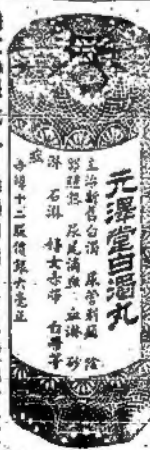 元澤堂白濁丸
主治新舊白濁　尿管刺痛　陰
器腫熱　尿尾滴點　血淋　砂
淋　石淋　婦女赤淋　白帶等
症
每罎十二服價銀六毫正